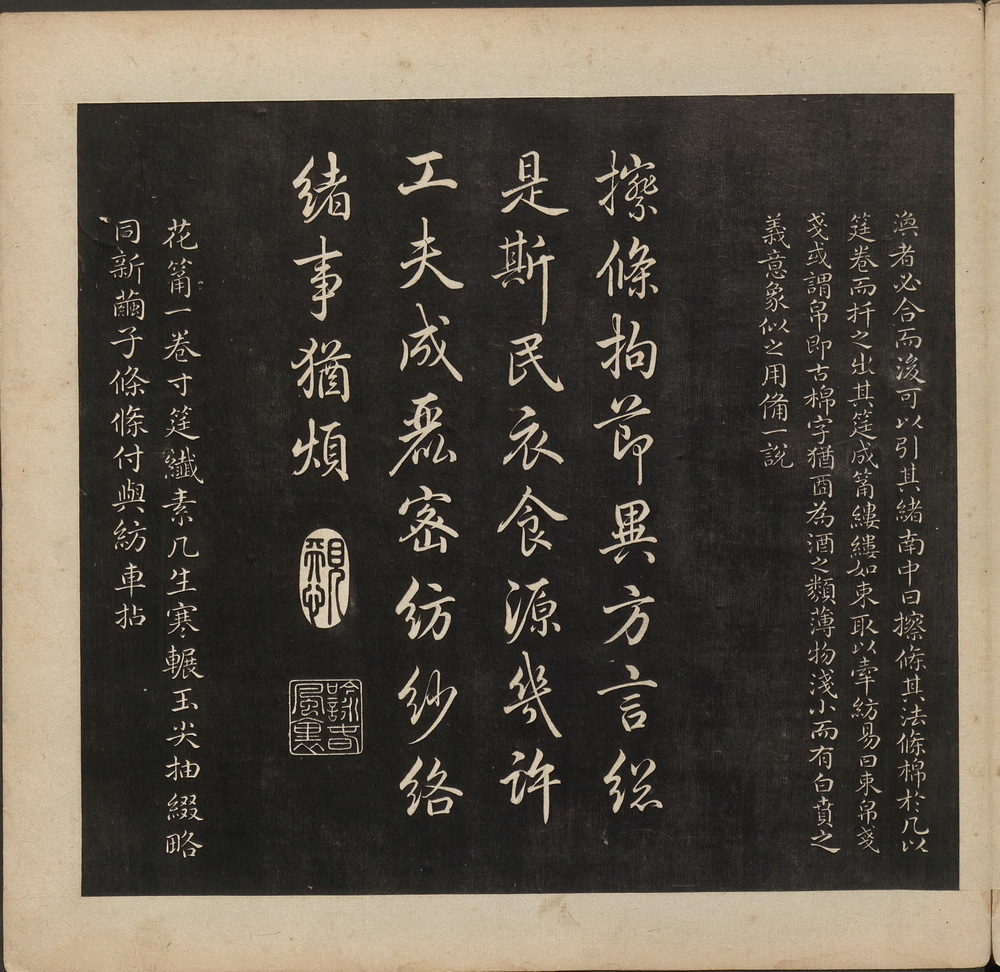 渙者必合而後可以引其緒南中曰擦條其法條棉於几以
筳卷而扞之出其筳成筩縷縷如束取以牽紡易曰束帛戔
戔或謂帛即古棉字猶酉為酒之類薄物淺小而有白賁之
義意象似之用備一說
擦條拘節異方言總
是斯民衣食源幾許
工夫成麗密紡紗絡
緒事猶煩
觀心
吟詠春風裏
花筩一卷寸筳纖素几生寒輾玉尖抽綴略
同新繭子條條付與紡車拈